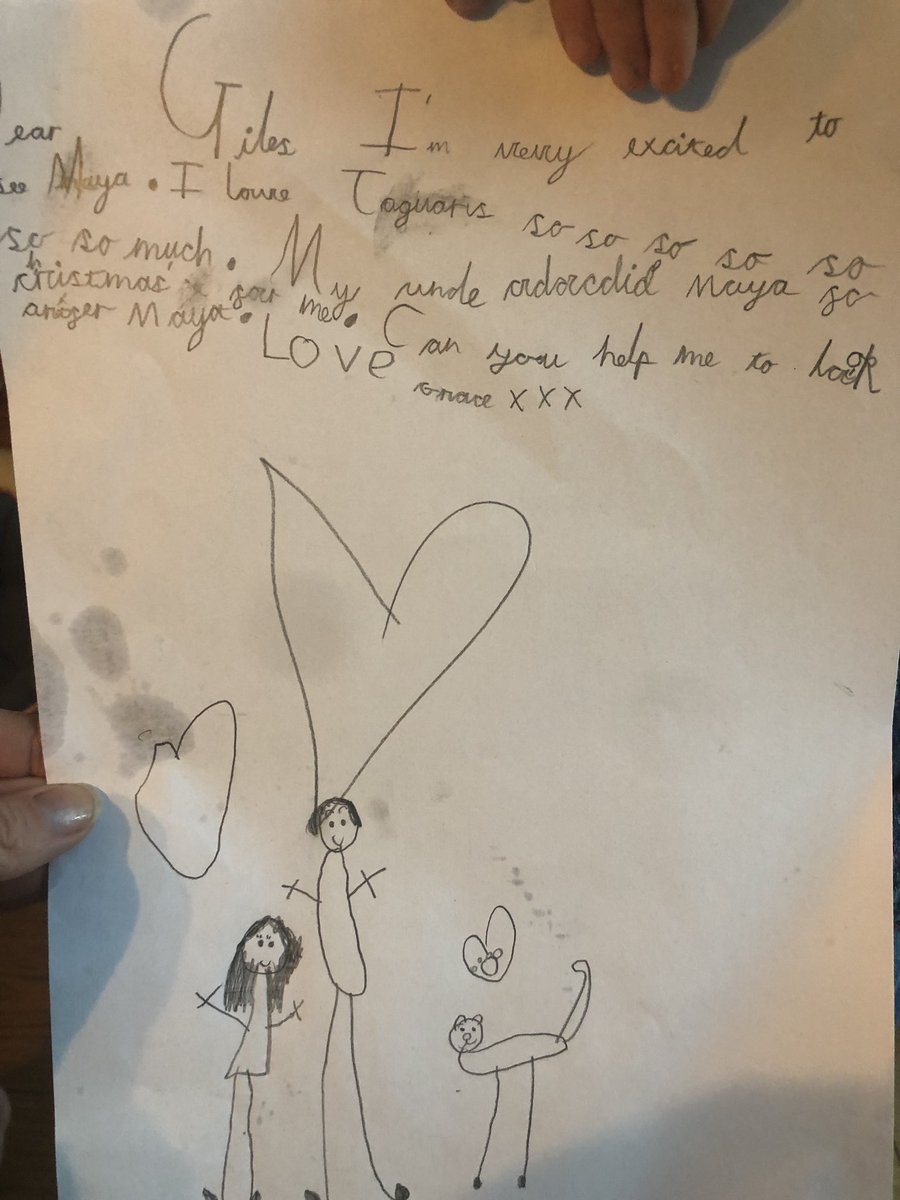 ear Giles I'm very excited to
see Maya. I love Jaguaris so so so so so
so so much. My uncle adoredid Maya so
christmas for me. Can you help me to look
arfger Maya.
Love
Grace xxx